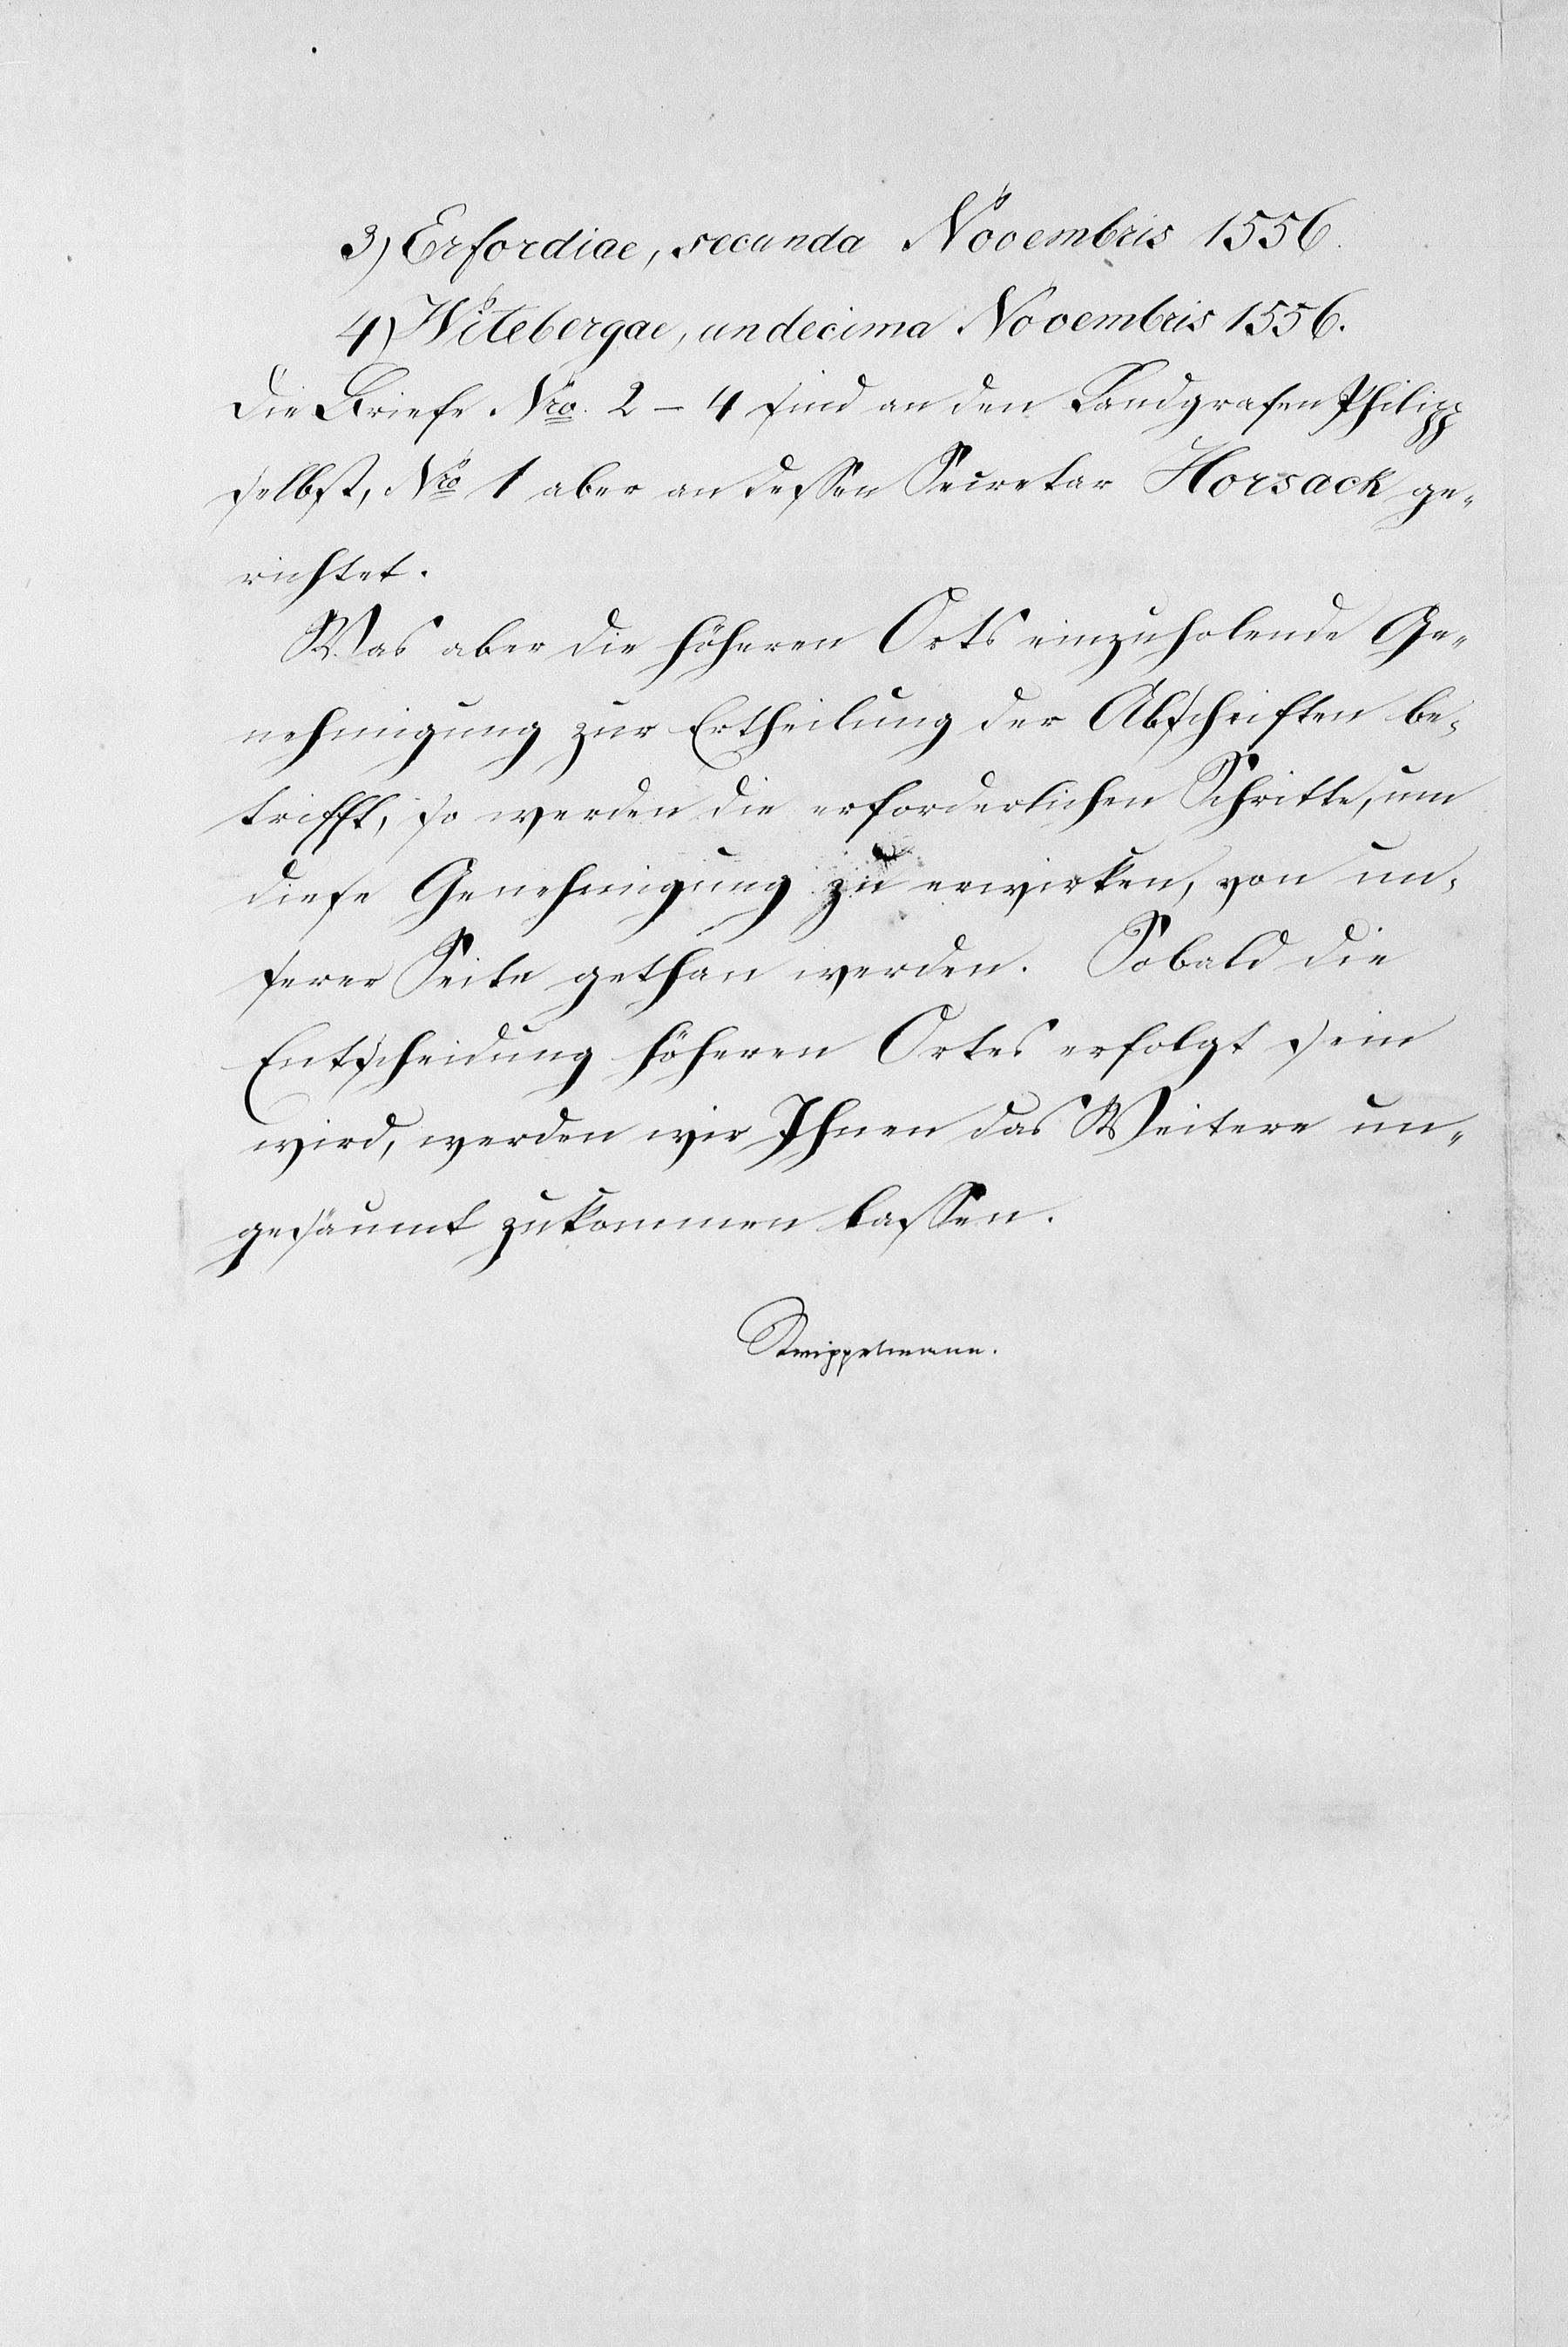 3) Erfordiae, secunda Novembris 1556.
4) Witebergae, undecima Novembris 1556.
Die Briefe Nro. 2 – 4 sind an den Landgrafen Philipp
selbst, Nro 1 aber an dessen Secretar Horsack ge-
richtet.
Was aber die höheren Orts einzuholende Ge-
nehmigung zur Ertheilung der Abschriften be-
trifft, so werden die erforderlichen Schritte, um
diese Genehmigung zu erwirken, von un-
serer Seite gethan werden. Sobald die
Entscheidung höheren Ortes erfolgt sein
wird, werden wir Ihnen das Weitere un-
gesäumt zukommen lassen.
Knippelmann.